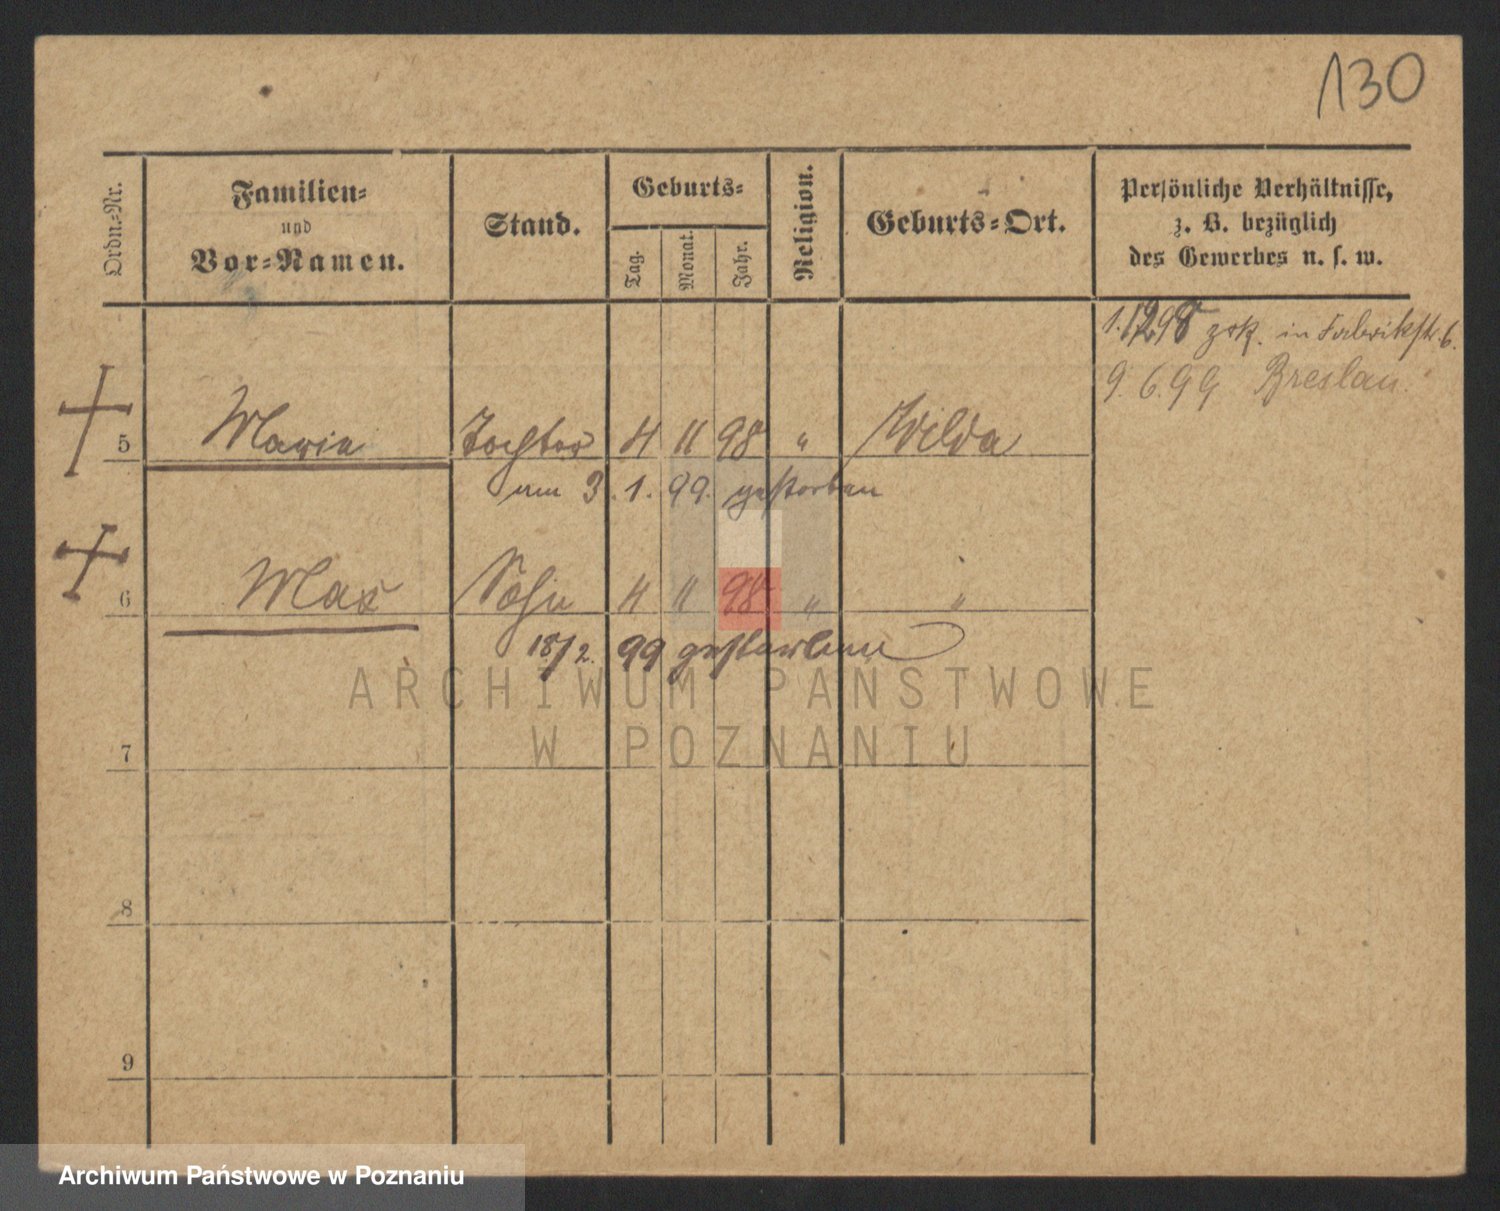 130
Ordn.-Nr.
Familien-
und
Vor-Namen.
Stand.
Geburts-
Tag.
Monat.
Jahr.
Religion.
Geburts-Ort.
Persönliche Verhältnisse,
z. B. bezüglich
des Gewerbes u. s. w.
1.12.98 in Fabrikstr. 6.
9.6.99 Breslau.
5 Maria Tochter 4 11 98 " Wilda
am 3.1.99. gestorben
6 Max Sohn 4 11 98 " "
18/2. 99 gestorben
ARCHIWUM PAŃSTWOWE
W POZNANIU
7
8
9
Archiwum Państwowe w Poznaniu